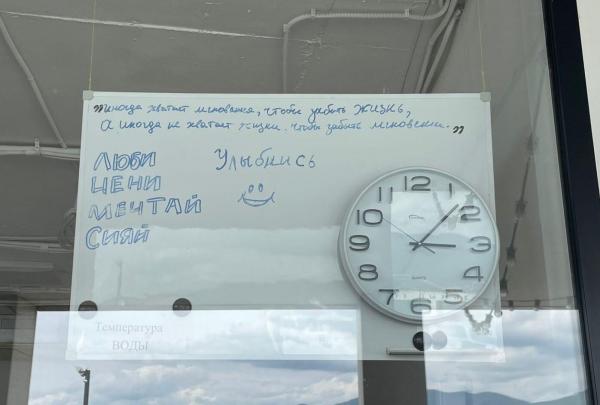 "иногда хватает мгновения, чтобы забыть жизнь,
а иногда не хватает жизни, чтобы забыть мгновение."
ЛЮБИ
ЦЕНИ
МЕЧТАЙ
СИЯЙ
Улыбнись
12
1
2
3
4
5
6
7
8
9
10
11
QUARTZ
Температура
ВОДЫ